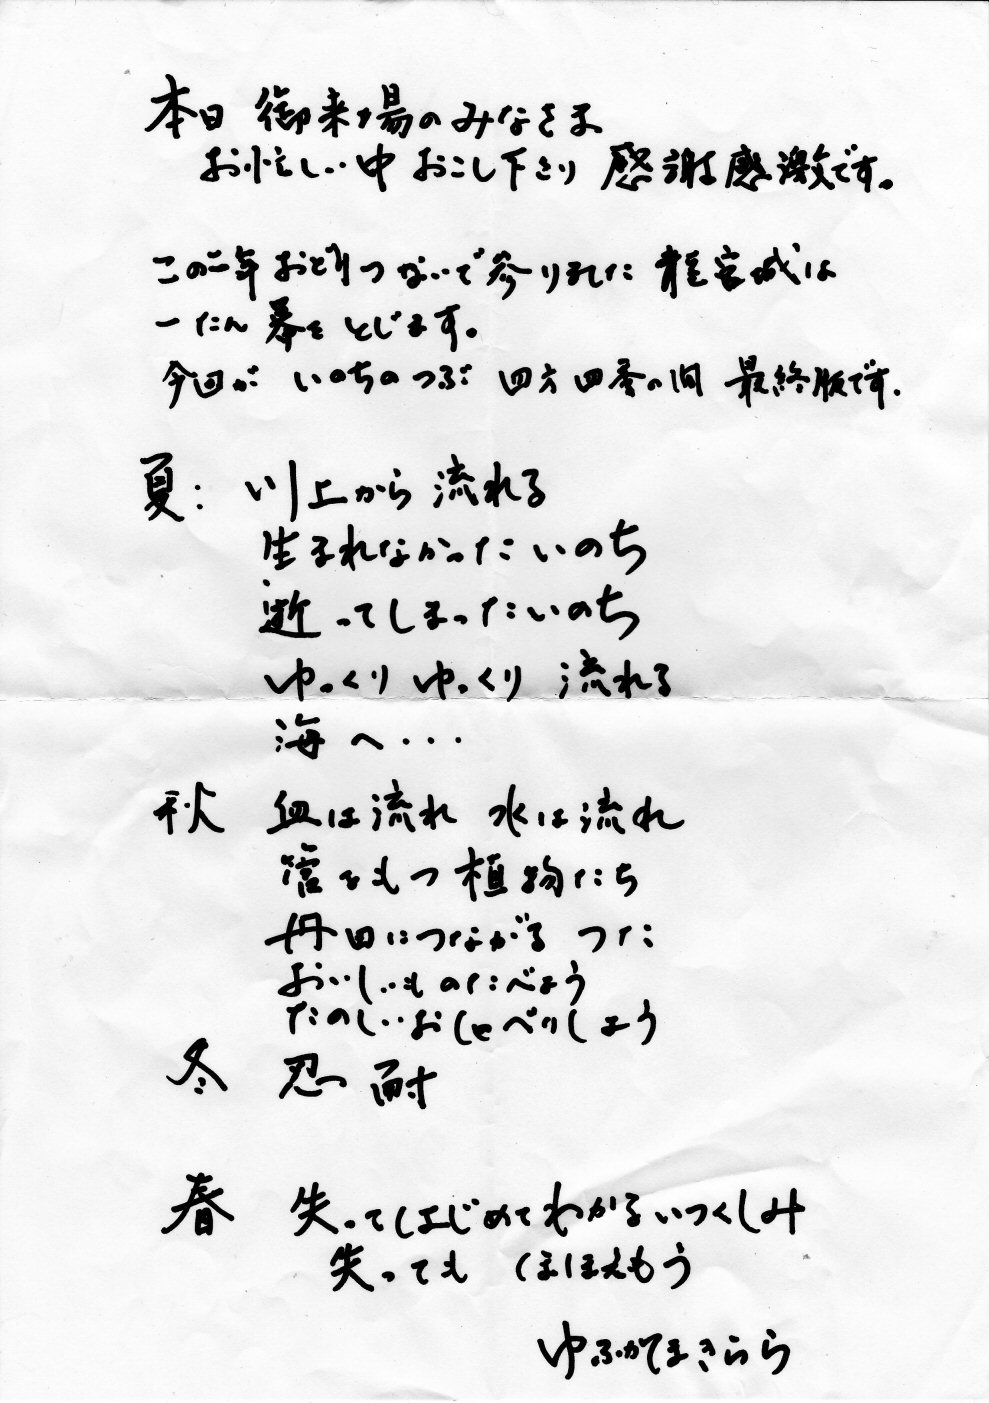 本日 御来場のみなさま
お忙しい中 おこし下さり 感謝感激です。
この二年 おどりつないで参りました 龍宮城は
一たん 幕を とじます。
今回が いのちのつぶ 四方四季の間 最終版です。
夏: 川上から 流れる
生まれなかった いのち
逝ってしまったいのち
ゆっくり ゆっくり 流れる
海へ・・・
秋 血は流れ 水は流れ
管をもつ 植物たち
丹田につながる つた
おいしいものたべよう
たのしいおしゃべりしよう
冬 忍耐
春 失ってはじめてわかる いつくしみ
失っても ほほえもう
ゆふがてまきらら